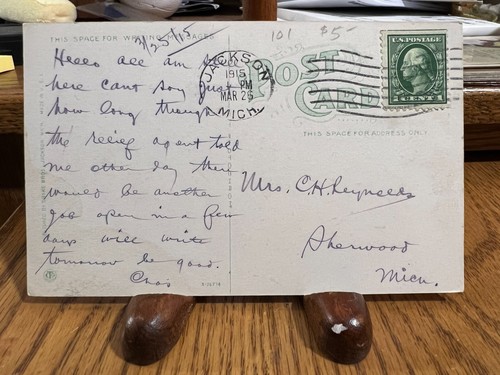 THIS SPACE FOR WRITING MESSAGES
3/25/15
Hello all am still
here cant say just
how long though
the relief agent told
me other day there
would be another
job open in a few
days will write
tomorrow be good.
Chas
101 $5-
JACKSON
1915
PM
MAR 26
MICH.
POST
CARD
THIS SPACE FOR ADDRESS ONLY
U.S. POSTAGE
1 CENT 1
Mrs. C.H. Reynolds
Sherwood
Mich.